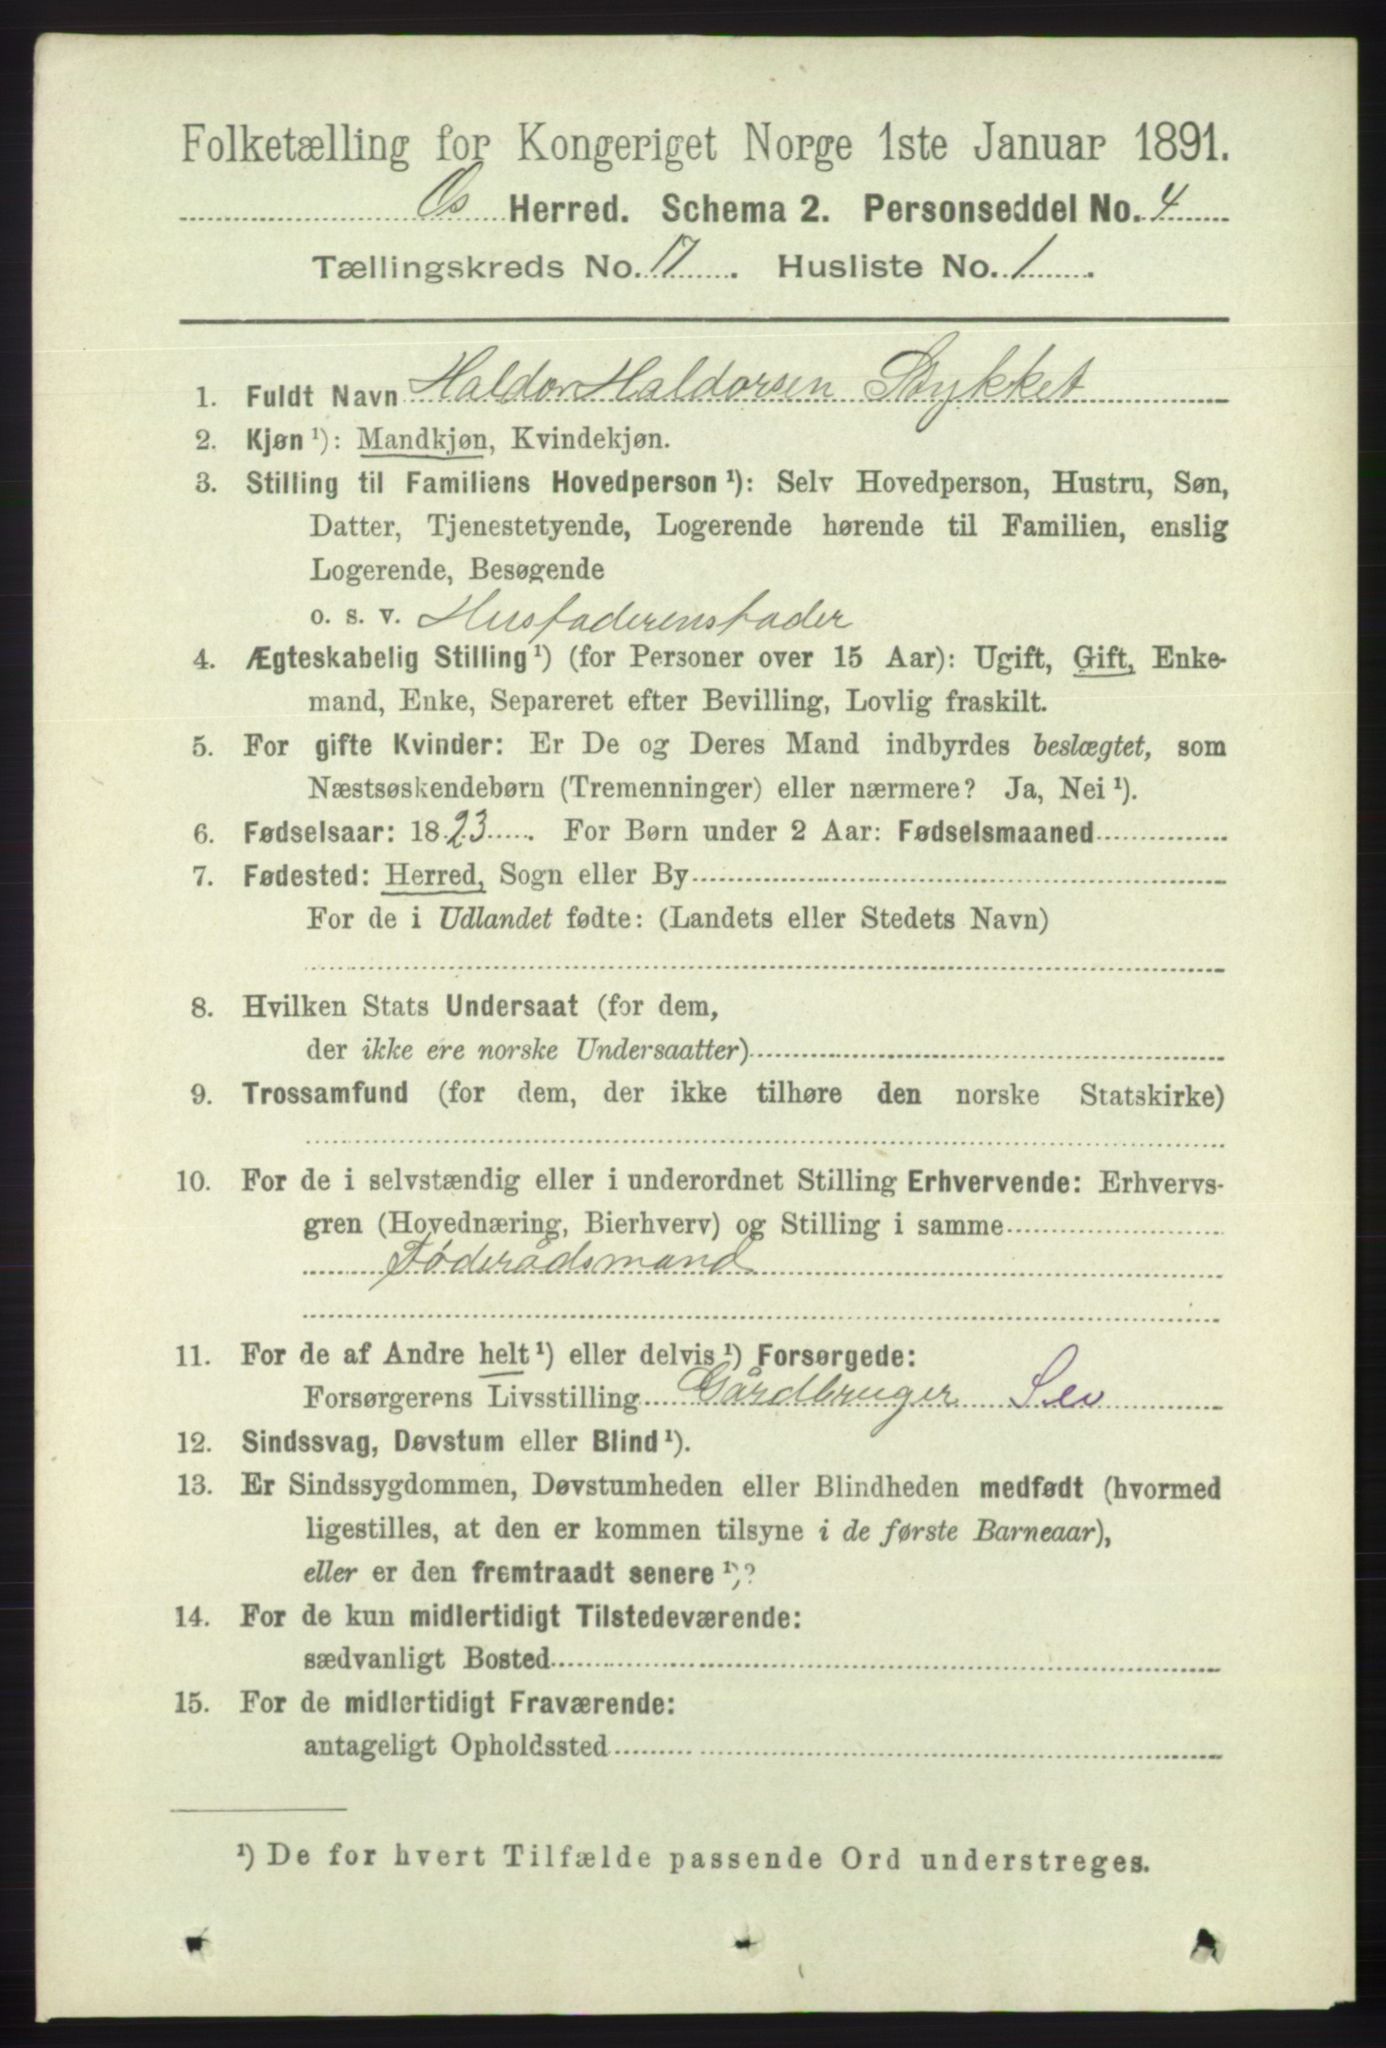 Folketælling for Kongeriget Norge 1ste Januar 1891.
Os Herred. Schema 2. Personseddel No. 4
Tællingskreds No. 17. Husliste No. 1.
1. Fuldt Navn Haldor Haldorsen Stykket
2. Kjøn ¹): Mandkjøn, Kvindekjøn.
3. Stilling til Familiens Hovedperson ¹): Selv Hovedperson, Hustru, Søn,
Datter, Tjenestetyende, Logerende hørende til Familien, enslig
Logerende, Besøgende
o. s. v. Husfaderensfader
4. Ægteskabelig Stilling ¹) (for Personer over 15 Aar): Ugift, Gift, Enke-
mand, Enke, Separeret efter Bevilling, Lovlig fraskilt.
5. For gifte Kvinder: Er De og Deres Mand indbyrdes beslægtet, som
Næstsøskendebørn (Tremenninger) eller nærmere? Ja, Nei ¹).
6. Fødselsaar: 1823. For Børn under 2 Aar: Fødselsmaaned
7. Fødested: Herred, Sogn eller By
For de i Udlandet fødte: (Landets eller Stedets Navn)
8. Hvilken Stats Undersaat (for dem,
der ikke ere norske Undersaatter)
9. Trossamfund (for dem, der ikke tilhøre den norske Statskirke)
10. For de i selvstændig eller i underordnet Stilling Erhvervende: Erhvervs-
gren (Hovednæring, Bierhverv) og Stilling i samme
Föderådsmand
11. For de af Andre helt ¹) eller delvis ¹) Forsørgede:
Forsørgerens Livsstilling Gårdbruger
12. Sindssvag, Døvstum eller Blind ¹).
13. Er Sindssygdommen, Døvstumheden eller Blindheden medfødt (hvormed
ligestilles, at den er kommen tilsyne i de første Barneaar),
eller er den fremtraadt senere ¹)?
14. For de kun midlertidigt Tilstedeværende:
sædvanligt Bosted
15. For de midlertidigt Fraværende:
antageligt Opholdssted
¹) De for hvert Tilfælde passende Ord understreges.